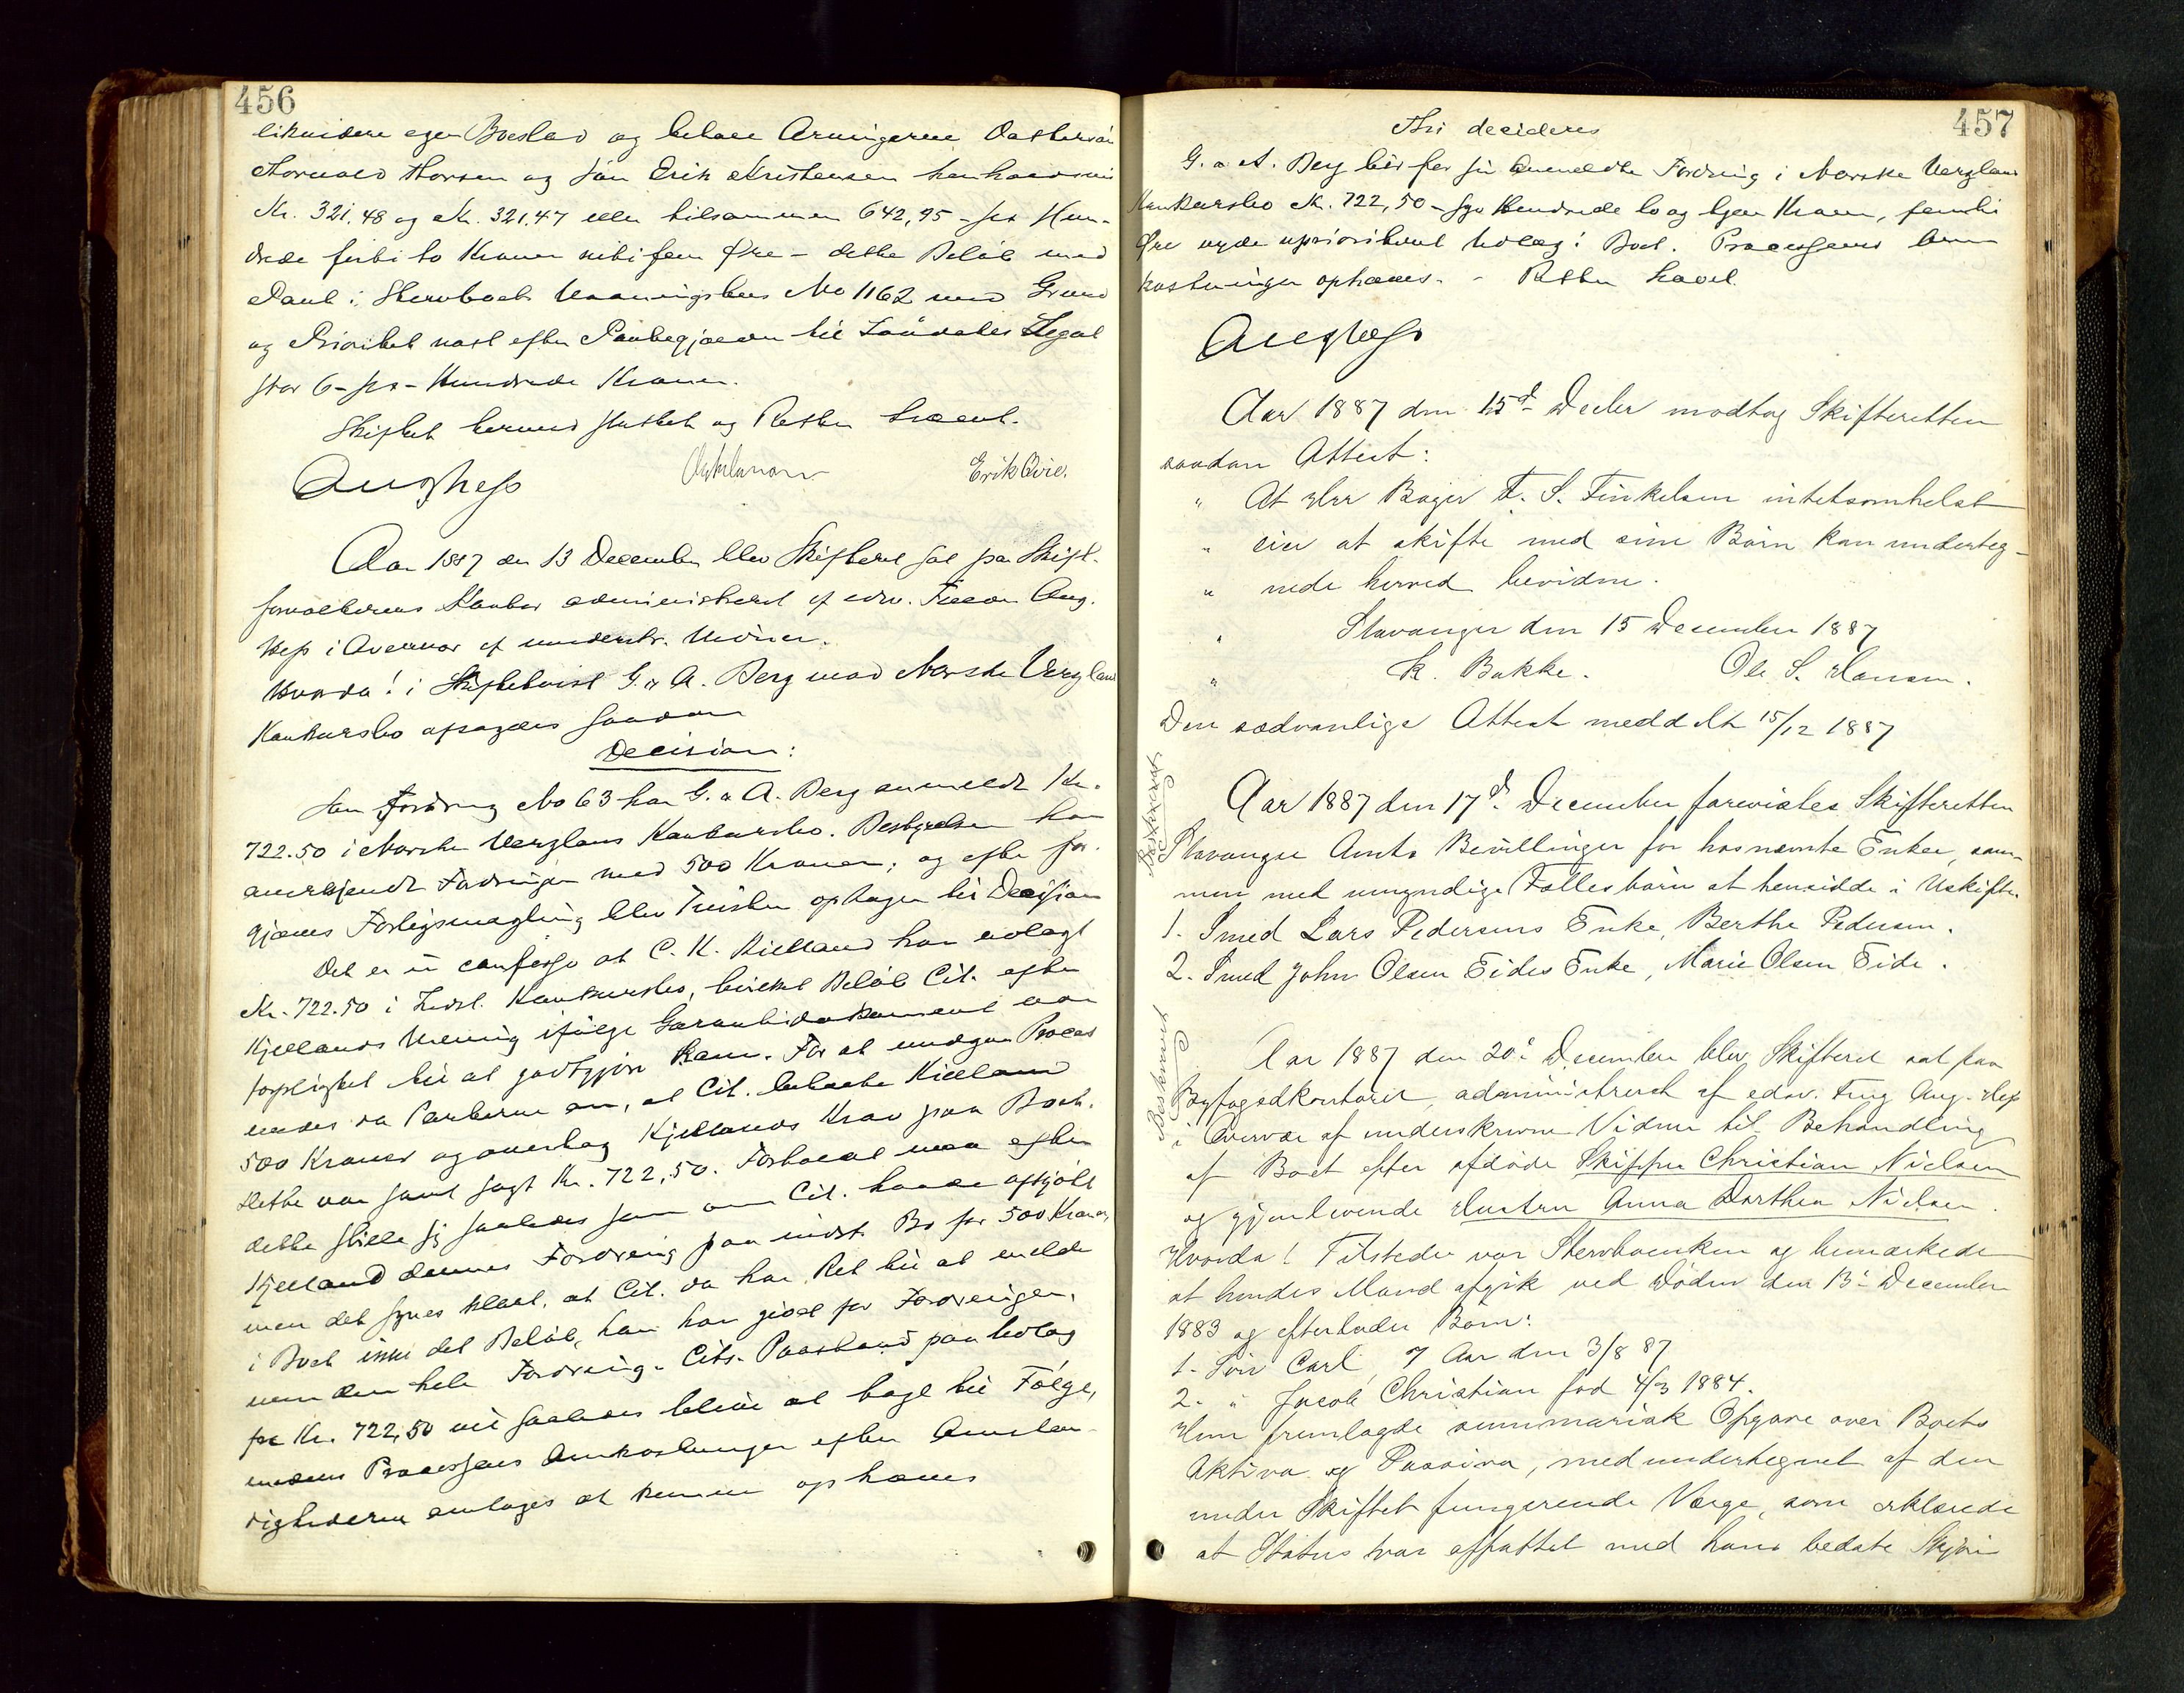 456
likvidere egen Boeslod og betale Arvingerne Datterson
Thorvald Thorsen og Søn Erik Kristensen henholdsvis
Kr. 321.48 og Kr. 321.47 eller tilsammen 642,95 – sex Hun-
drede firti to Kroner nitifem Øre – dette Beløb mod
Pant i Stervboets Vaaningshus No 1162 med Grund
og Prioritet næst efter Pantegjælden til Legat
stor 6 – sex – Hundrede Kroner.
Skiftet hermed sluttet og Retten hævet.
Aug Hess Erik Qvie.
Aar 1887 den 13 December blev Skifteret sat paa Skift-
forvalterens Kontor administreret af edsv. Fuldm. Aug.
Hess i Overvær af underskr. Vidner.
Hvorda! i Skiftetvist G. & A. Berg mod Norske Verglands
Konkursbo afsagdes saadan
Decision:
Som Fordring No 63 har G. & A. Berg anmeldt Kr.
722.50 i Norske Verglans Konkursbo. Bestyrelsen har
anerkjendt Fordringen med 500 Kroner; og efter for-
gjæves Forligsmægling blev Tvisten optagen til Decision
Det er in confesso at C. K. Kielland har udlagt
Kr. 722.50 i Indst. Konkursbo, hvilket Beløb Cit. efter
Kjellands Mening ifølge Garantidokument var
forpligtet til at godtgjøre ham. For at undgaa Proces
endes da Parterne om, at Cit. betalte Kielland
500 Kroner og overtog Kjellands Krav paa Boet.
Dette var som sagt Kr. 722,50. Forholdet maa efter
dette stille sig saaledes som om Cit. havde afkjøbt
Kjelland dennes Fordring paa indst. Bo for 500 Kroner,
men det synes klart, at Cit. da har Ret til at melde
i Boet ikke det Beløb, han har givet for Fordringen,
men den hele Fordring. Cits. Paastand paa Udlæg
for Kr. 722,50 vil saaledes blive at tage til Følge,
medens Processens Omkostninger efter Omstæn-
dighederne antages at kunne ophæves
457
Thi decideres
G. & A. Berg bør for sin anmeldte Fordring i Norske Verglans
Konkursbo Kr. 722,50 – syv Hundrede to og tyve Kroner, femti
Øre nyde uprioriteret Udlæg i Boet. Processens Om-
kostninger ophæves. – Retten hævet.
Aug Hess
Aar 1887 den 15d. Decbr modtog Skifteretten
saadan Attest:
" At Hrr Bager T. S. Tinkelsen intetsomhelst
" eier at skifte med sine Børn kan underteg-
" nede herved bevidne.
" Stavanger den 15 December 1887
" K. Bakke. Ole S. Hansen.
Den sædvanlige Attest meddelt 15/12 1887
Beskrevet
Aar 1887 den 17d. December forevistes Skifteretten
Stavanger Amts Bevillinger for hosnævnte Enker, sam-
men med umyndige Fællesbørn at hensidde i Uskifte.
1. Smed Lars Pedersens Enke, Berthe Pedersen.
2. Smed John Olsen Eides Enke, Marie Olsen Eide.
Beskrevet
Aar 1887 den 20d December blev Skifteret sat paa
Byfogedkontoret, administreret af edsv. Fmg Aug. Hess
i Overvær af underskrevne Vidner til Behandling
af Boet efter afdøde Skipper Christian Nielsen
og gjenlevende Hustru Anna Dorthea Nielsen.
Hvorda! Tilstede var Stervboenken og bemærkede
at hendes Mand afgik ved Døden den 13d December
1883 og efterlader Børn:
1. Søn Carl, 7 Aar den 3/8 87
2. " Jacob Christian fød 4/3 1884.
Hun fremlagde summarisk Opgave over Boets
Aktiva og Passiva, medundertegnet af den
under Skiftet fungerende Værge, som erklærede
at Status var affattet med hans bedste Skjøn